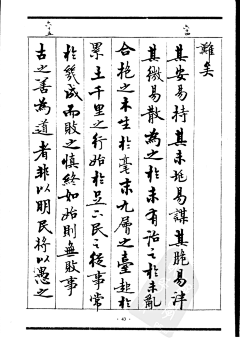 難矣
其安易持其未兆易謀其脆易泮
其微易散為之於未有治之於未亂
合抱之木生於毫末九層之臺起於
累土千里之行始於足下民之從事常
於幾成而敗之慎終如始則無敗事
古之善為道者非以明民將以愚之
· 43 ·